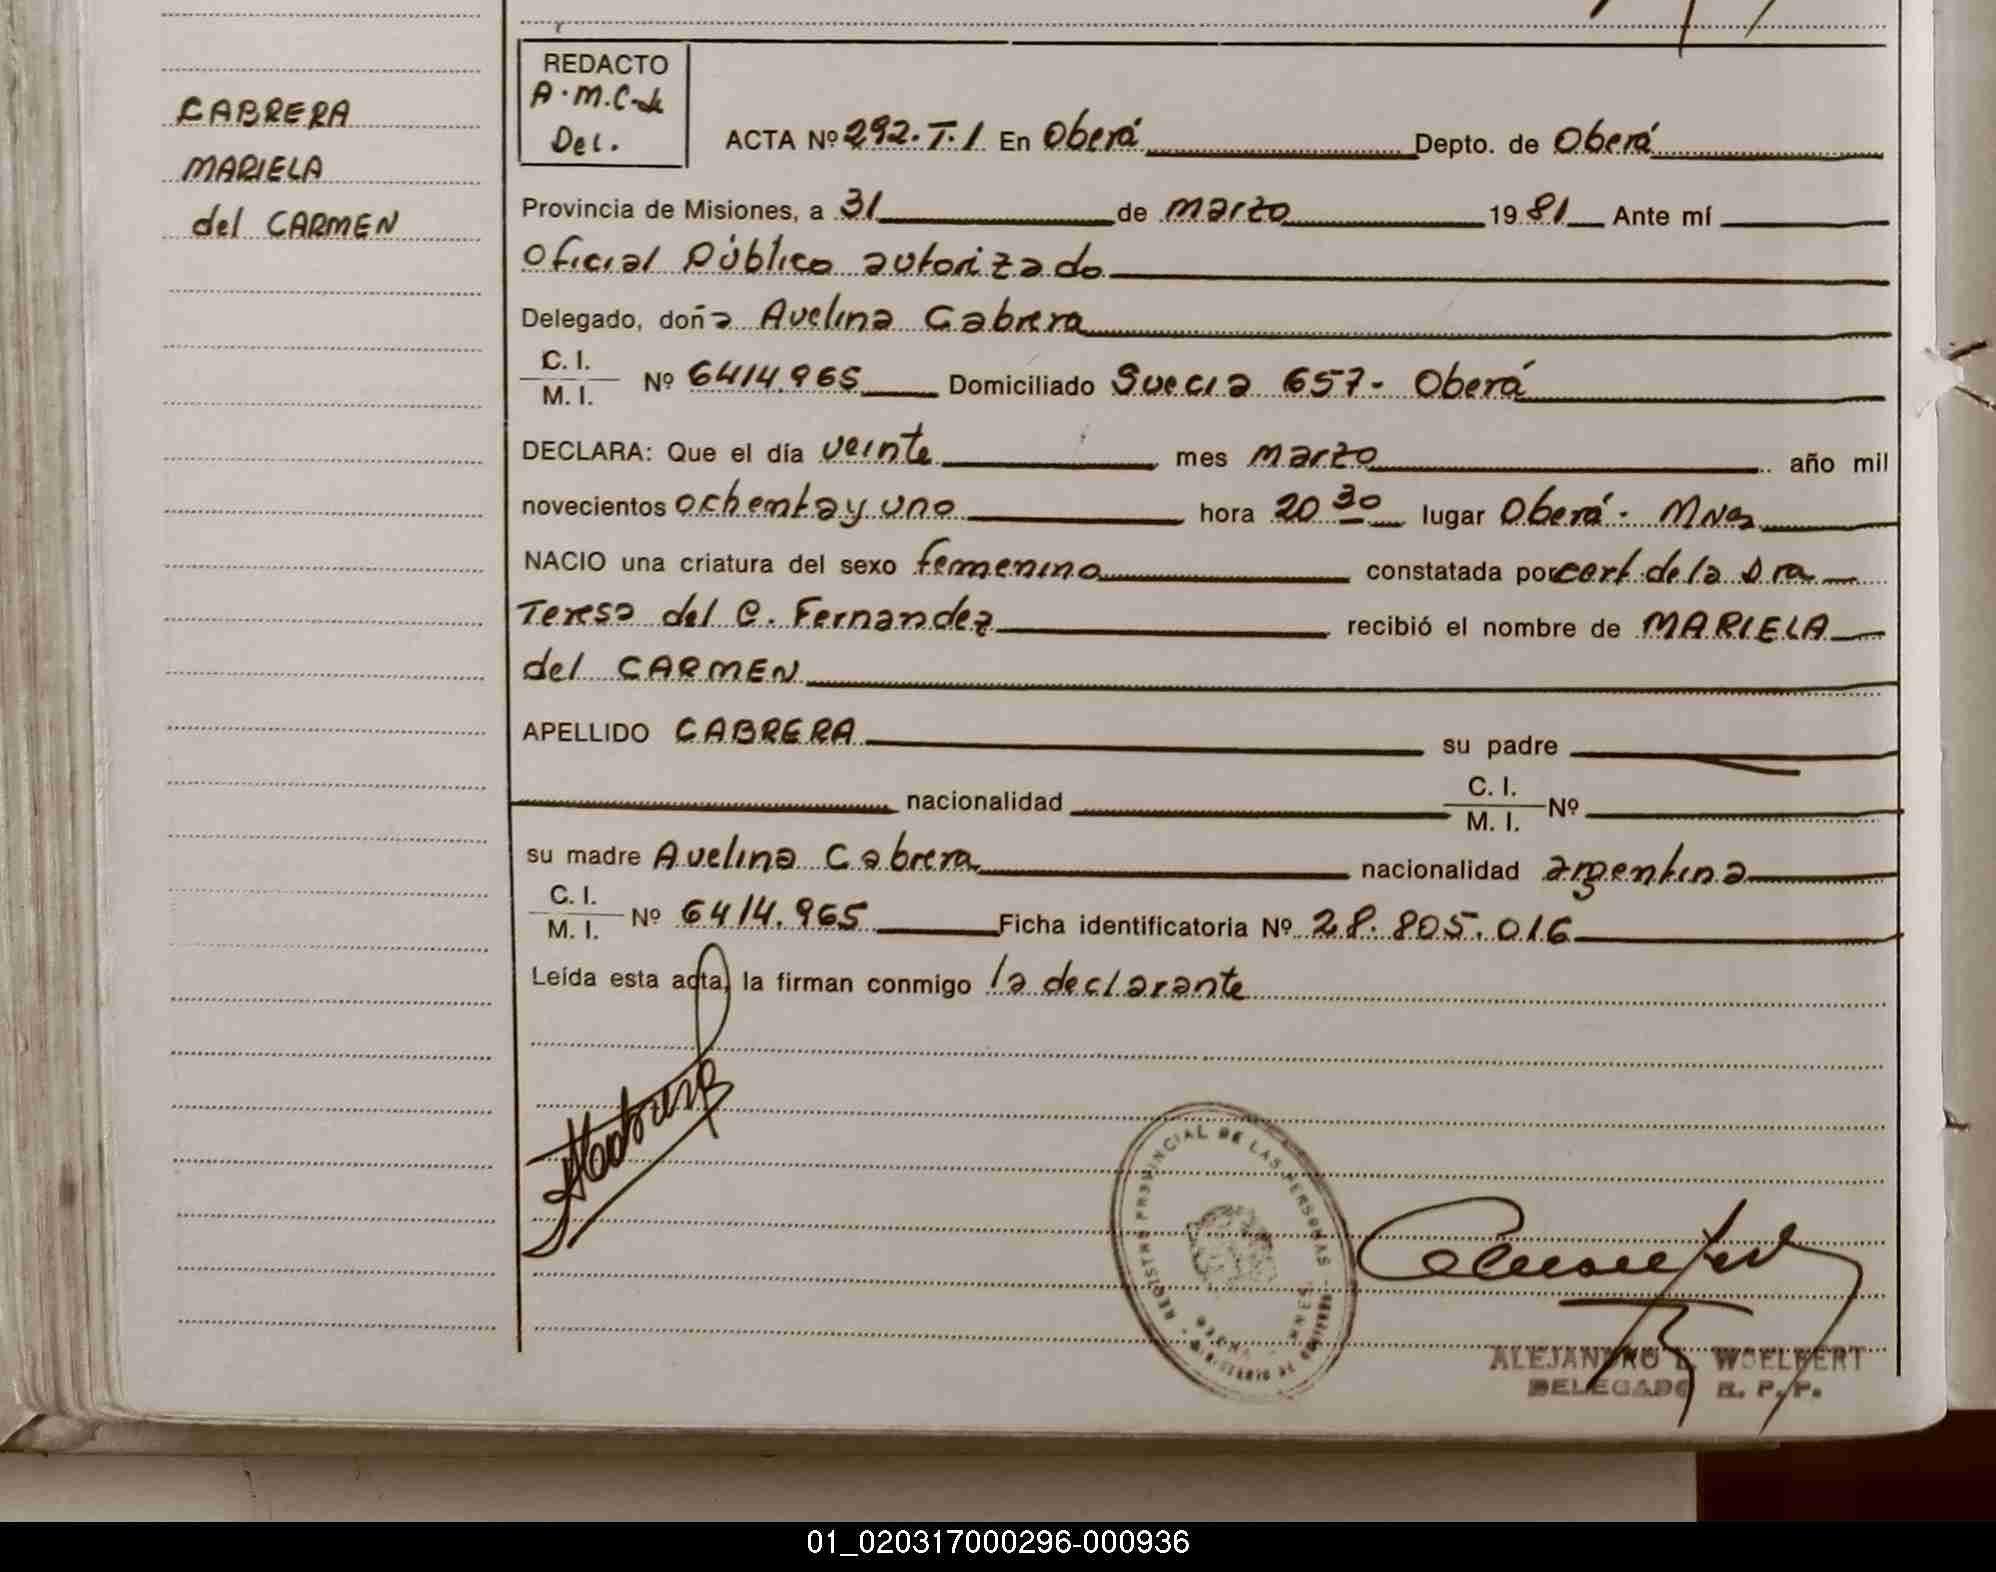 CABRERA
MARIELA
del CARMEN
REDACTO
A.M.C.de
Del.
ACTA Nº 292.T.1 En Oberá Depto. de Oberá
Provincia de Misiones, a 31 de marzo 1981 Ante mí
Oficial Público autorizado
Delegado, doña Avelina Cabrera
C. I.
M. I. Nº 6414.965 Domiciliado Suecia 657- Oberá
DECLARA: Que el día veinte mes marzo año mil
novecientos ochenta y uno hora 20 30 lugar Oberá - Mnes
NACIO una criatura del sexo femenino constatada por cert. de la Dra
Teresa del C. Fernandez recibió el nombre de MARIELA
del CARMEN
APELLIDO CABRERA su padre
nacionalidad C. I. M. I. Nº
su madre Avelina Cabrera nacionalidad argentina
C. I.
M. I. Nº 6414.965 Ficha identificatoria Nº 28.805.016
Leída esta acta, la firman conmigo la declarante
REGISTRO PROVINCIAL DE LAS PERSONAS
ALEJANDRO WOELFERT
DELEGADO R. P. P.
01_020317000296-000936